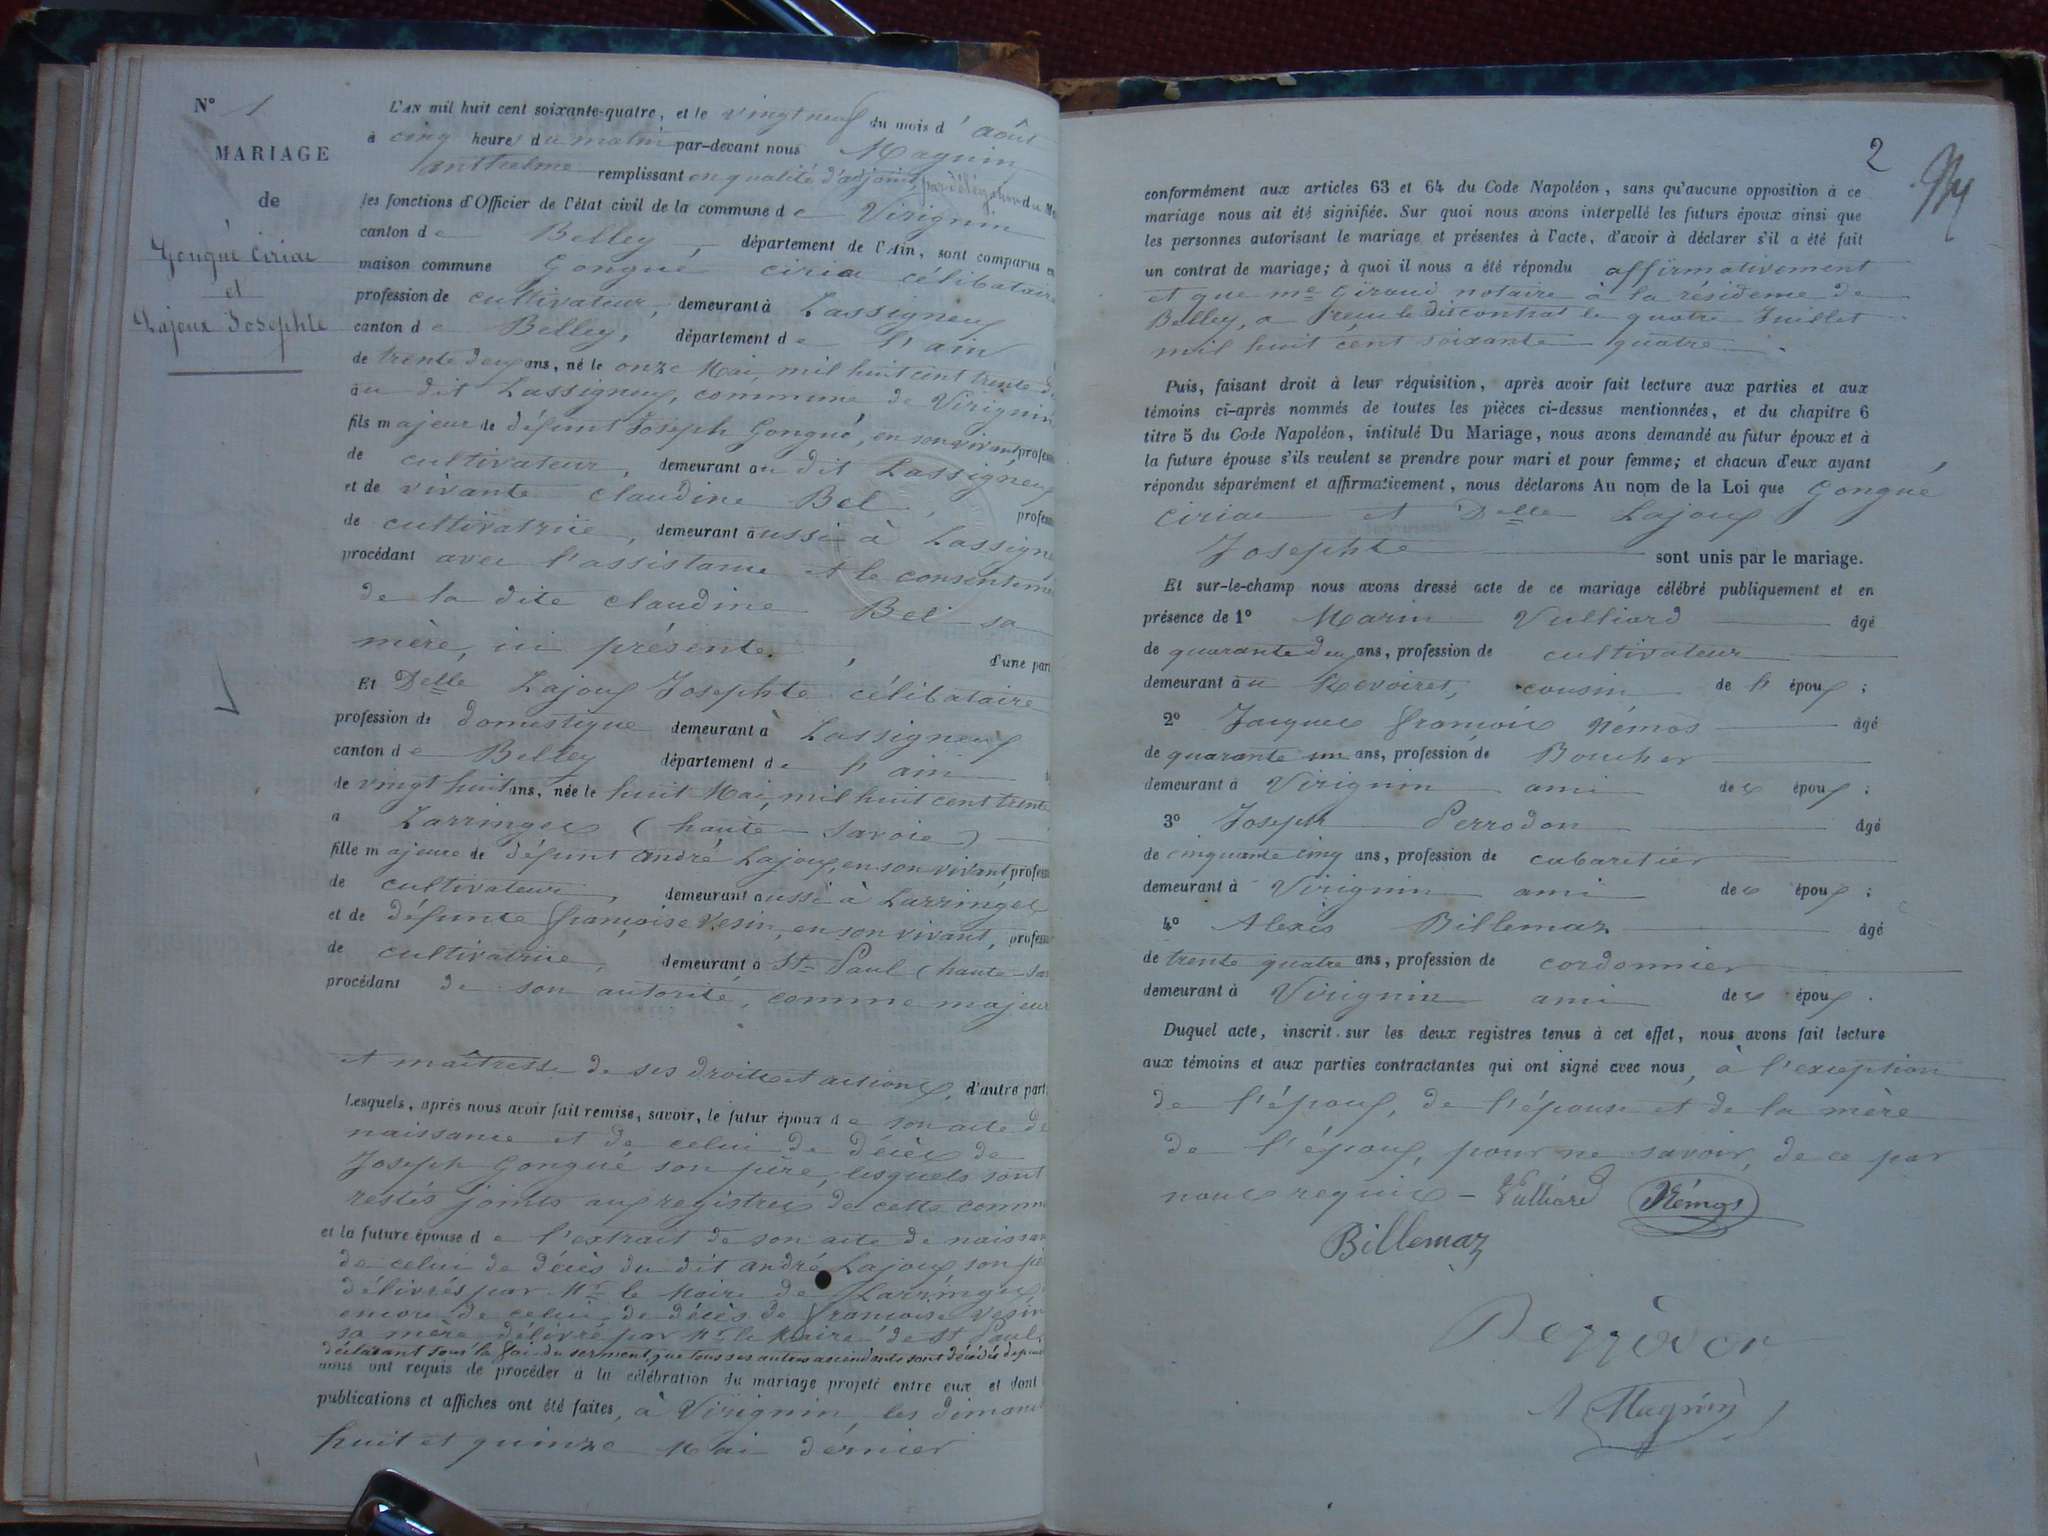 N° 1
MARIAGE
de
Gongué Ciriac
et
Lajoux Josephte
L'AN mil huit cent soixante-quatre, et le vingt neuf du mois d'août
à cinq heures du matin par-devant nous Magnin
anthelme remplissant en qualité d'adjoint, par délégation du
les fonctions d'Officier de l'état civil de la commune de Virignin
canton de Belley, département de l'Ain, sont comparus en
maison commune Gongué ciriac célibataire
profession de cultivateur, demeurant à Lassigneux
canton de Belley, département de l'ain
de trente deux ans, né le onze Mai, mil huit cent trente
au dit Lassigneux, commune de Virignin
fils majeur de défunt Joseph Gongué, en son vivant, profess
de cultivateur, demeurant au dit Lassigneux
et de vivante claudine Bel, profess
de cultivatrice, demeurant aussi à Lassigne
procédant avec l'assistance et le consenteme
de la dite claudine Bel sa
mère, ici présente, d'une part
Et Delle Lajoux Josephte célibataire
profession de domestique demeurant à Lassigneux
canton de Belley département de l'ain
de vingt huit ans, née le huit Mai, mil huit cent trente
à Larringes (haute-Savoie)
fille majeure de défunt andré Lajoux, en son vivant profess
de cultivateur, demeurant aussi à Larringes
et de défunte françoise Vesin, en son vivant, profess
de cultivatrice, demeurant à St Paul (haute-Sav
procédant de son autorité, comme majeur
et maîtresse de ses droits et actions, d'autre part
Lesquels, après nous avoir fait remise, savoir, le futur époux de son acte de
naissance et de celui de décès de
Joseph Gongué son père, lesquels sont
restés joints aux registres de cette comm
et la future épouse de l'extrait de son acte de naissan
de celui de décès du dit andré Lajoux son pè
délivrés par Mr le Maire de Larringes
encore de celui de décès de françoise Vesin
sa mère délivré par Mr le Maire de St Paul
déclarant sous la foi du serment que tous ses autres ascendants sont décédés depuis
nous ont requis de procéder à la célébration du mariage projeté entre eux et dont
publications et affiches ont été faites, à Virignin, les dimanch
huit et quinze Mai dernier
2
conformément aux articles 63 et 64 du Code Napoléon, sans qu'aucune opposition à ce
mariage nous ait été signifiée. Sur quoi nous avons interpellé les futurs époux ainsi que
les personnes autorisant le mariage et présentes à l'acte, d'avoir à déclarer s'il a été fait
un contrat de mariage; à quoi il nous a été répondu affirmativement
et que me Giraud notaire à la résidence de
Belley, a reçu le dit contrat le quatre Juillet
mil huit cent soixante quatre.
Puis, faisant droit à leur réquisition, après avoir fait lecture aux parties et aux
témoins ci-après nommés de toutes les pièces ci-dessus mentionnées, et du chapitre 6
titre 5 du Code Napoléon, intitulé Du Mariage, nous avons demandé au futur époux et à
la future épouse s'ils veulent se prendre pour mari et pour femme; et chacun d'eux ayant
répondu séparément et affirmativement, nous déclarons Au nom de la Loi que Gongué
Ciriac et Delle Lajoux
Josephte sont unis par le mariage.
Et sur-le-champ nous avons dressé acte de ce mariage célébré publiquement et en
présence de 1° Marin Vulliard âgé
de quarante deux ans, profession de cultivateur
demeurant au Revoiret, cousin de l'époux;
2° Jacques françois Némos âgé
de quarante un ans, profession de Boucher
demeurant à Virignin ami des époux;
3° Joseph Perrodon âgé
de cinquante cinq ans, profession de cabaretier
demeurant à Virignin ami des époux;
4° Alexis Billemaz âgé
de trente quatre ans, profession de cordonnier
demeurant à Virignin ami des époux.
Duquel acte, inscrit sur les deux registres tenus à cet effet, nous avons fait lecture
aux témoins et aux parties contractantes qui ont signé avec nous, à l'exception
de l'époux, de l'épouse et de la mère
de l'époux, pour ne savoir, de ce par
nous requis – Vulliard Némos
Billemaz
A Magnin